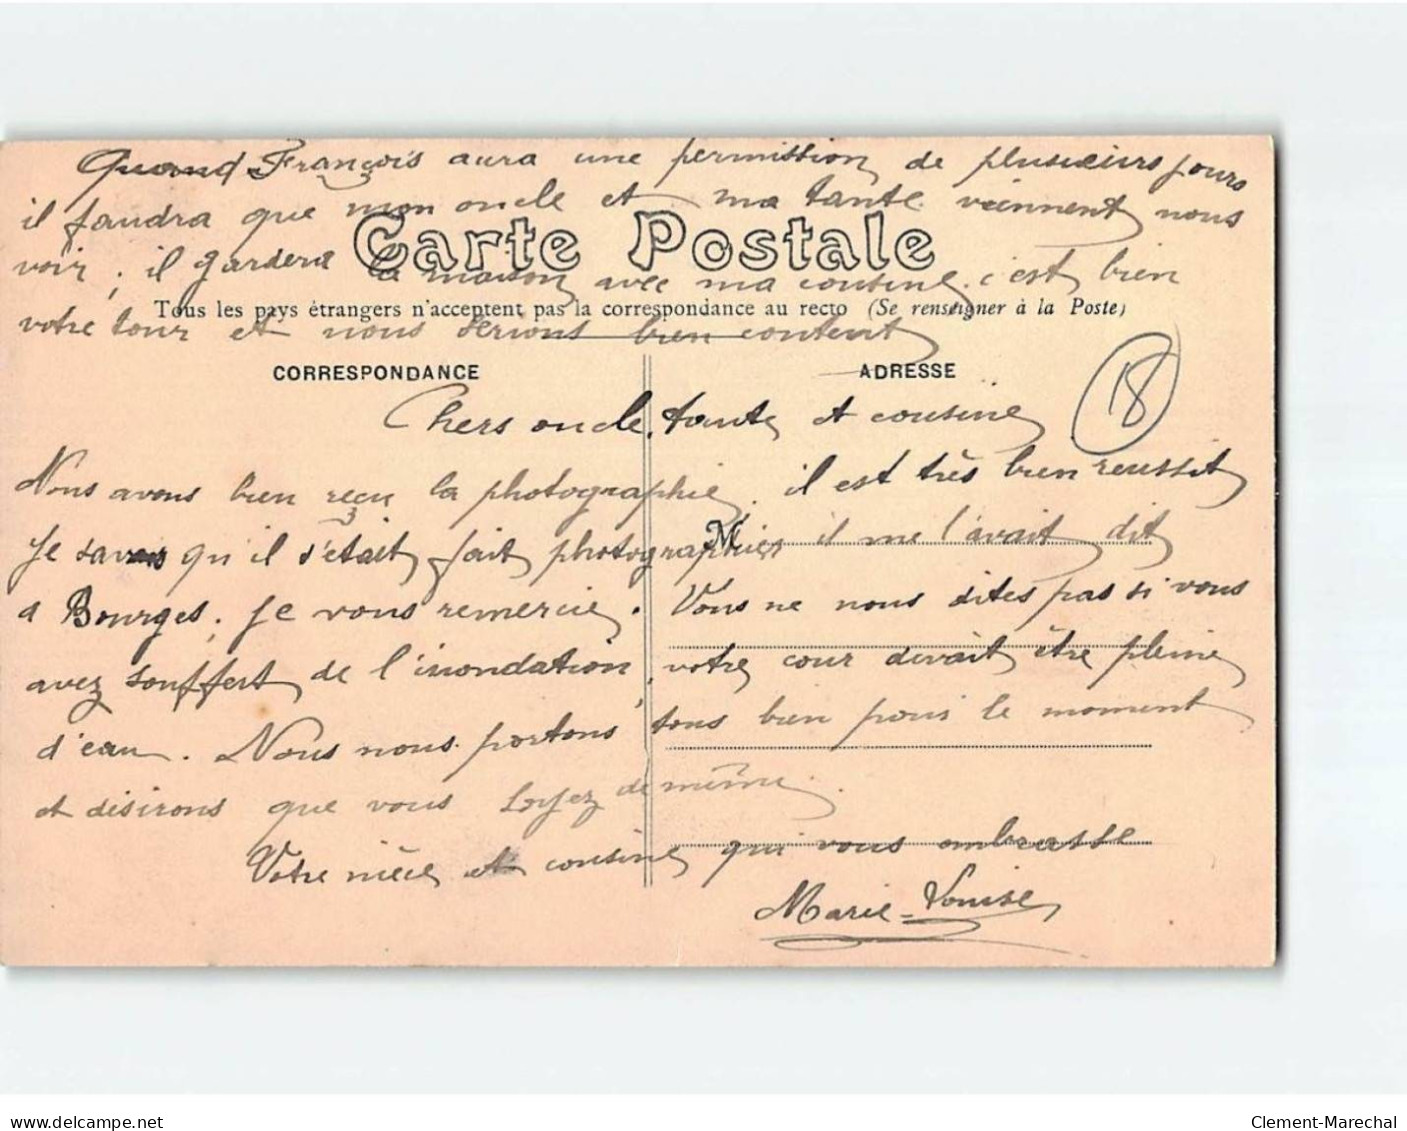 Quand François aura une permission de plusieurs jours
il faudra que mon oncle et ma tante viennent nous
Carte Postale
voir, il gardera la maison avec ma cousine. c'est bien
Tous les pays étrangers n'acceptent pas la correspondance au recto (Se renseigner à la Poste)
votre tour et nous serions bien content
CORRESPONDANCE
ADRESSE
18
Chers oncle, tante et cousine
Nous avons bien reçu la photographie, il est très bien reussit
M
Je savais qu'il s'était fait photographier il me l'avait dit
a Bourges. Je vous remercie. Vous ne nous dites pas si vous
avez souffert de l'inondation, votre cour devait être pleine
d'eau. Nous nous portons tous bien pour le moment
et désirons que vous soyez de même.
Votre nièce et cousine qui vous embrasse
Marie-Louise
www.delcampe.net
Clement-Marechal